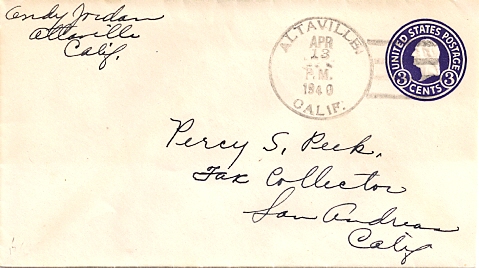 Andy Jordan
Altaville
Calif.
ALTAVILLE
APR
13
P.M.
1940
CALIF.
UNITED STATES POSTAGE
3 CENTS 3
Percy S. Peek,
Tax Collector
San Andreas
Calif